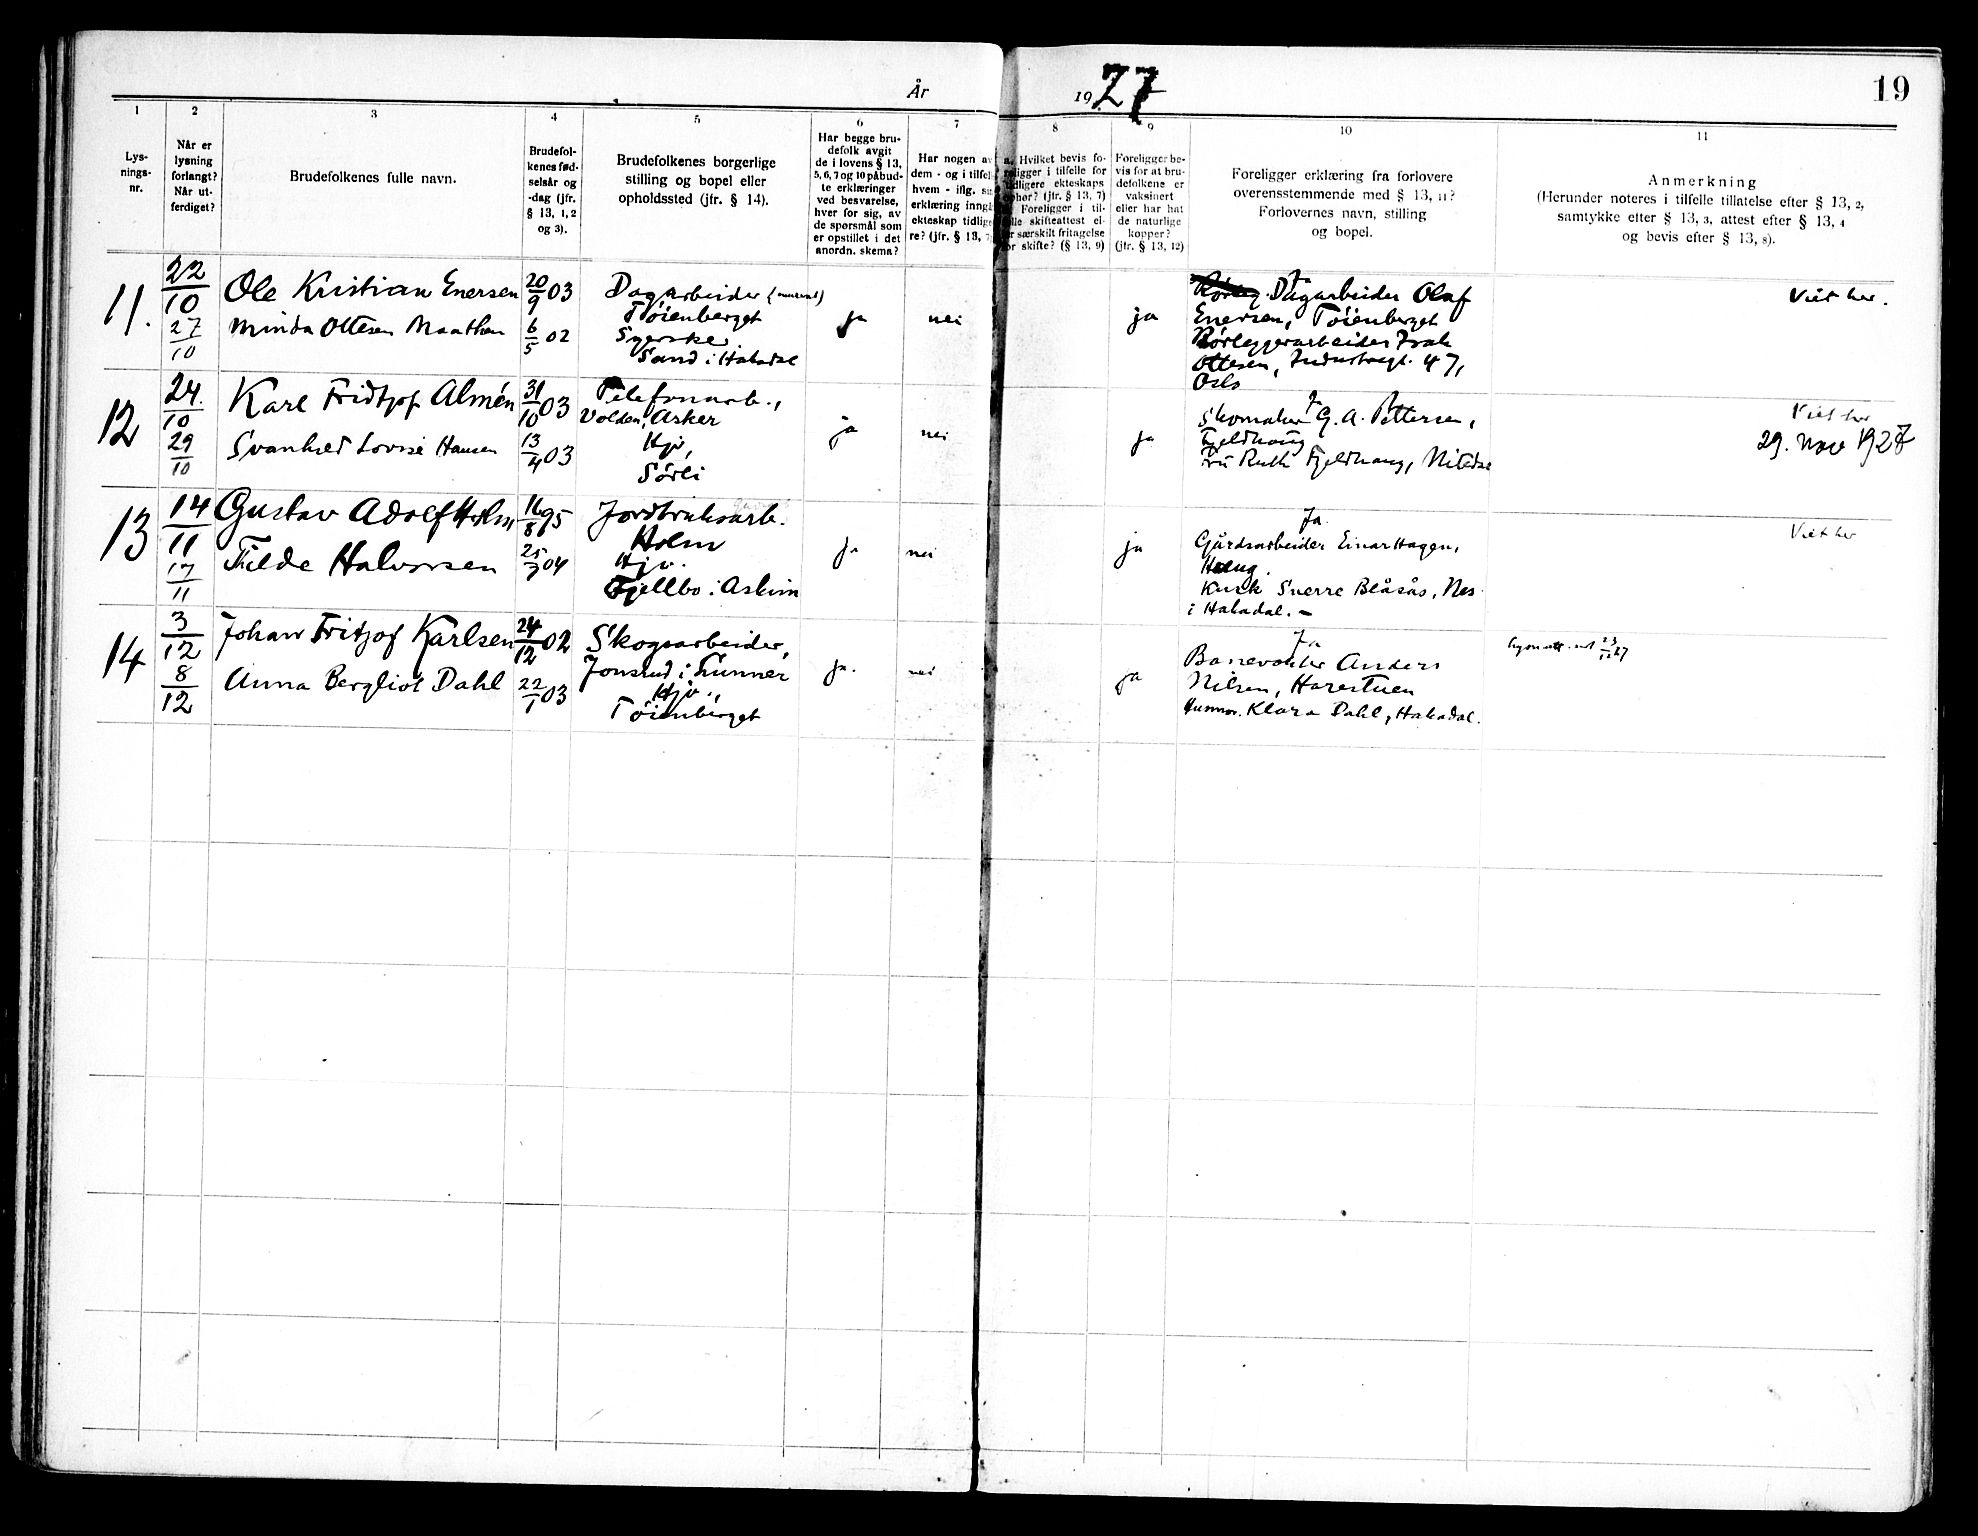 År 1927
19
1
2
3
4
5
6
7
8
9
10
11
Lys-
nings-
nr.
Når er
lysning
forlangt?
Når ut-
ferdiget?
Brudefolkenes fulle navn.
Brudefol-
kenes fød-
selsår og
-dag (jfr.
§ 13, 1, 2
og 3).
Brudefolkenes borgerlige
stilling og bopel eller
opholdssted (jfr. § 14).
Har begge bru-
defolk avgit
de i lovens § 13,
5, 6, 7 og 10 påbud-
te erklæringer
ved besvarelse,
hver for sig, av
de spørsmål som
er opstillet i det
anordn. skema?
Har nogen av
dem - og i tilfel
hvem - iflg. si
erklæring inngå
ekteskap tidlig
re? (jfr. § 13, 7
a. Hvilket bevis fo-
religger i tilfelle for
tidligere ekteskaps
ophør? (jfr. § 13, 7)
Foreligger i til-
elle skifteattest el-
r særskilt fritagelse
or skifte? (§ 13, 9)
Foreligger be-
vis for at bru-
defolkene er
vaksinert
eller har hat
de naturlige
kopper?
(jfr. § 13, 12)
Foreligger erklæring fra forlovere
overensstemmende med § 13, 11?
Forlovernes navn, stilling
og bopel.
Anmerkning
(Herunder noteres i tilfelle tillatelse efter § 13, 2,
samtykke efter § 13, 3, attest efter § 13, 4
og bevis efter § 13, 8).
11.
22/10
27/10
Ole Kristian Enersen
Minda Ottesen Maathen
20/9 03
6/5 02
Dagarbeider
Tøienberget
Syerske
Sand i Hakadal
ja
nei
ja
Dagarbeider Olaf
Enersen, Tøienberget
Rørleggerarbeider Isak
Ottesen, Industrigt. 47,
Oslo
Viet her.
12
24./10
29/10
Karl Fridtjof Almén
Svanhild Lovise Hansen
31/10 03
13/4 03
Telefonarb.,
Volden, Asker
Hjv,
Sørli
ja
nei
ja
Skomaker G. A. Pettersen,
Fjeldhaug
Fru Ruth Fjeldhaug, Nitedal
Viet her
29. nov 1927
13
14/11
17/11
Gustav Adolf Holm
Tilde Halvorsen
16/8 95
25/7 04
Jordbruksarb.
Holm
Hjv.
Fjellbo i Askim
Ja
nei
ja
Ja.
Gårdsarbeider Einar Hagen,
Haug.
Kusk Sverre Blåsås, Nes
i Hakadal. -
Viet her
14
3/12
8/12
Johan Fritjof Karlsen
Anna Bergliot Dahl
24/12 02
22/1 03
Skogsarbeider,
Jonsrud i Lunner
Hjv.,
Tøienberget
ja.
nei
ja
Ja
Banevokter Anders
Nilsen, Harestuen
Klara Dahl, Hakadal.
23/12 27